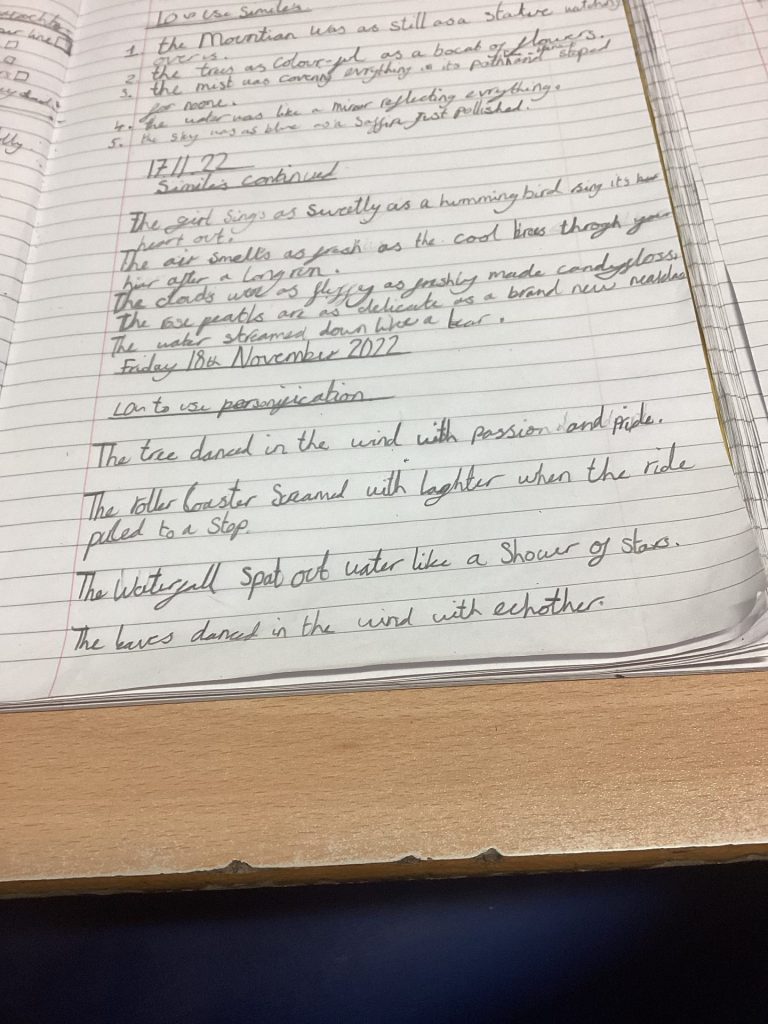 to use similes
1. the Mountian was as still as a statue watching
over us.
2. the trees as colour-ful as a bocat of flowers.
3. the mist was covering evrything in its path and stoped
for noone.
4. the water was like a mirror reflecting evrything.
5. the sky was as blue as a saffire just pollished.
17.11.22
Similes continued
The girl sings as sweetly as a humming bird sing its
heart out.
The air smells as fresh as the cool brees throgh your
hair after a long run.
The clouds were as fluffy as freshly made candyfloss.
The rose peatls are as delicate as a brand new
The water streamed down like a tear.
Friday 18th November 2022
to use personification
The tree danced in the wind with passion and pride.
The roller coaster screamed with laghter when the ride
puled to a stop.
The Waterfall spat out water like a shower of stars.
The leaves danced in the wind with echother.